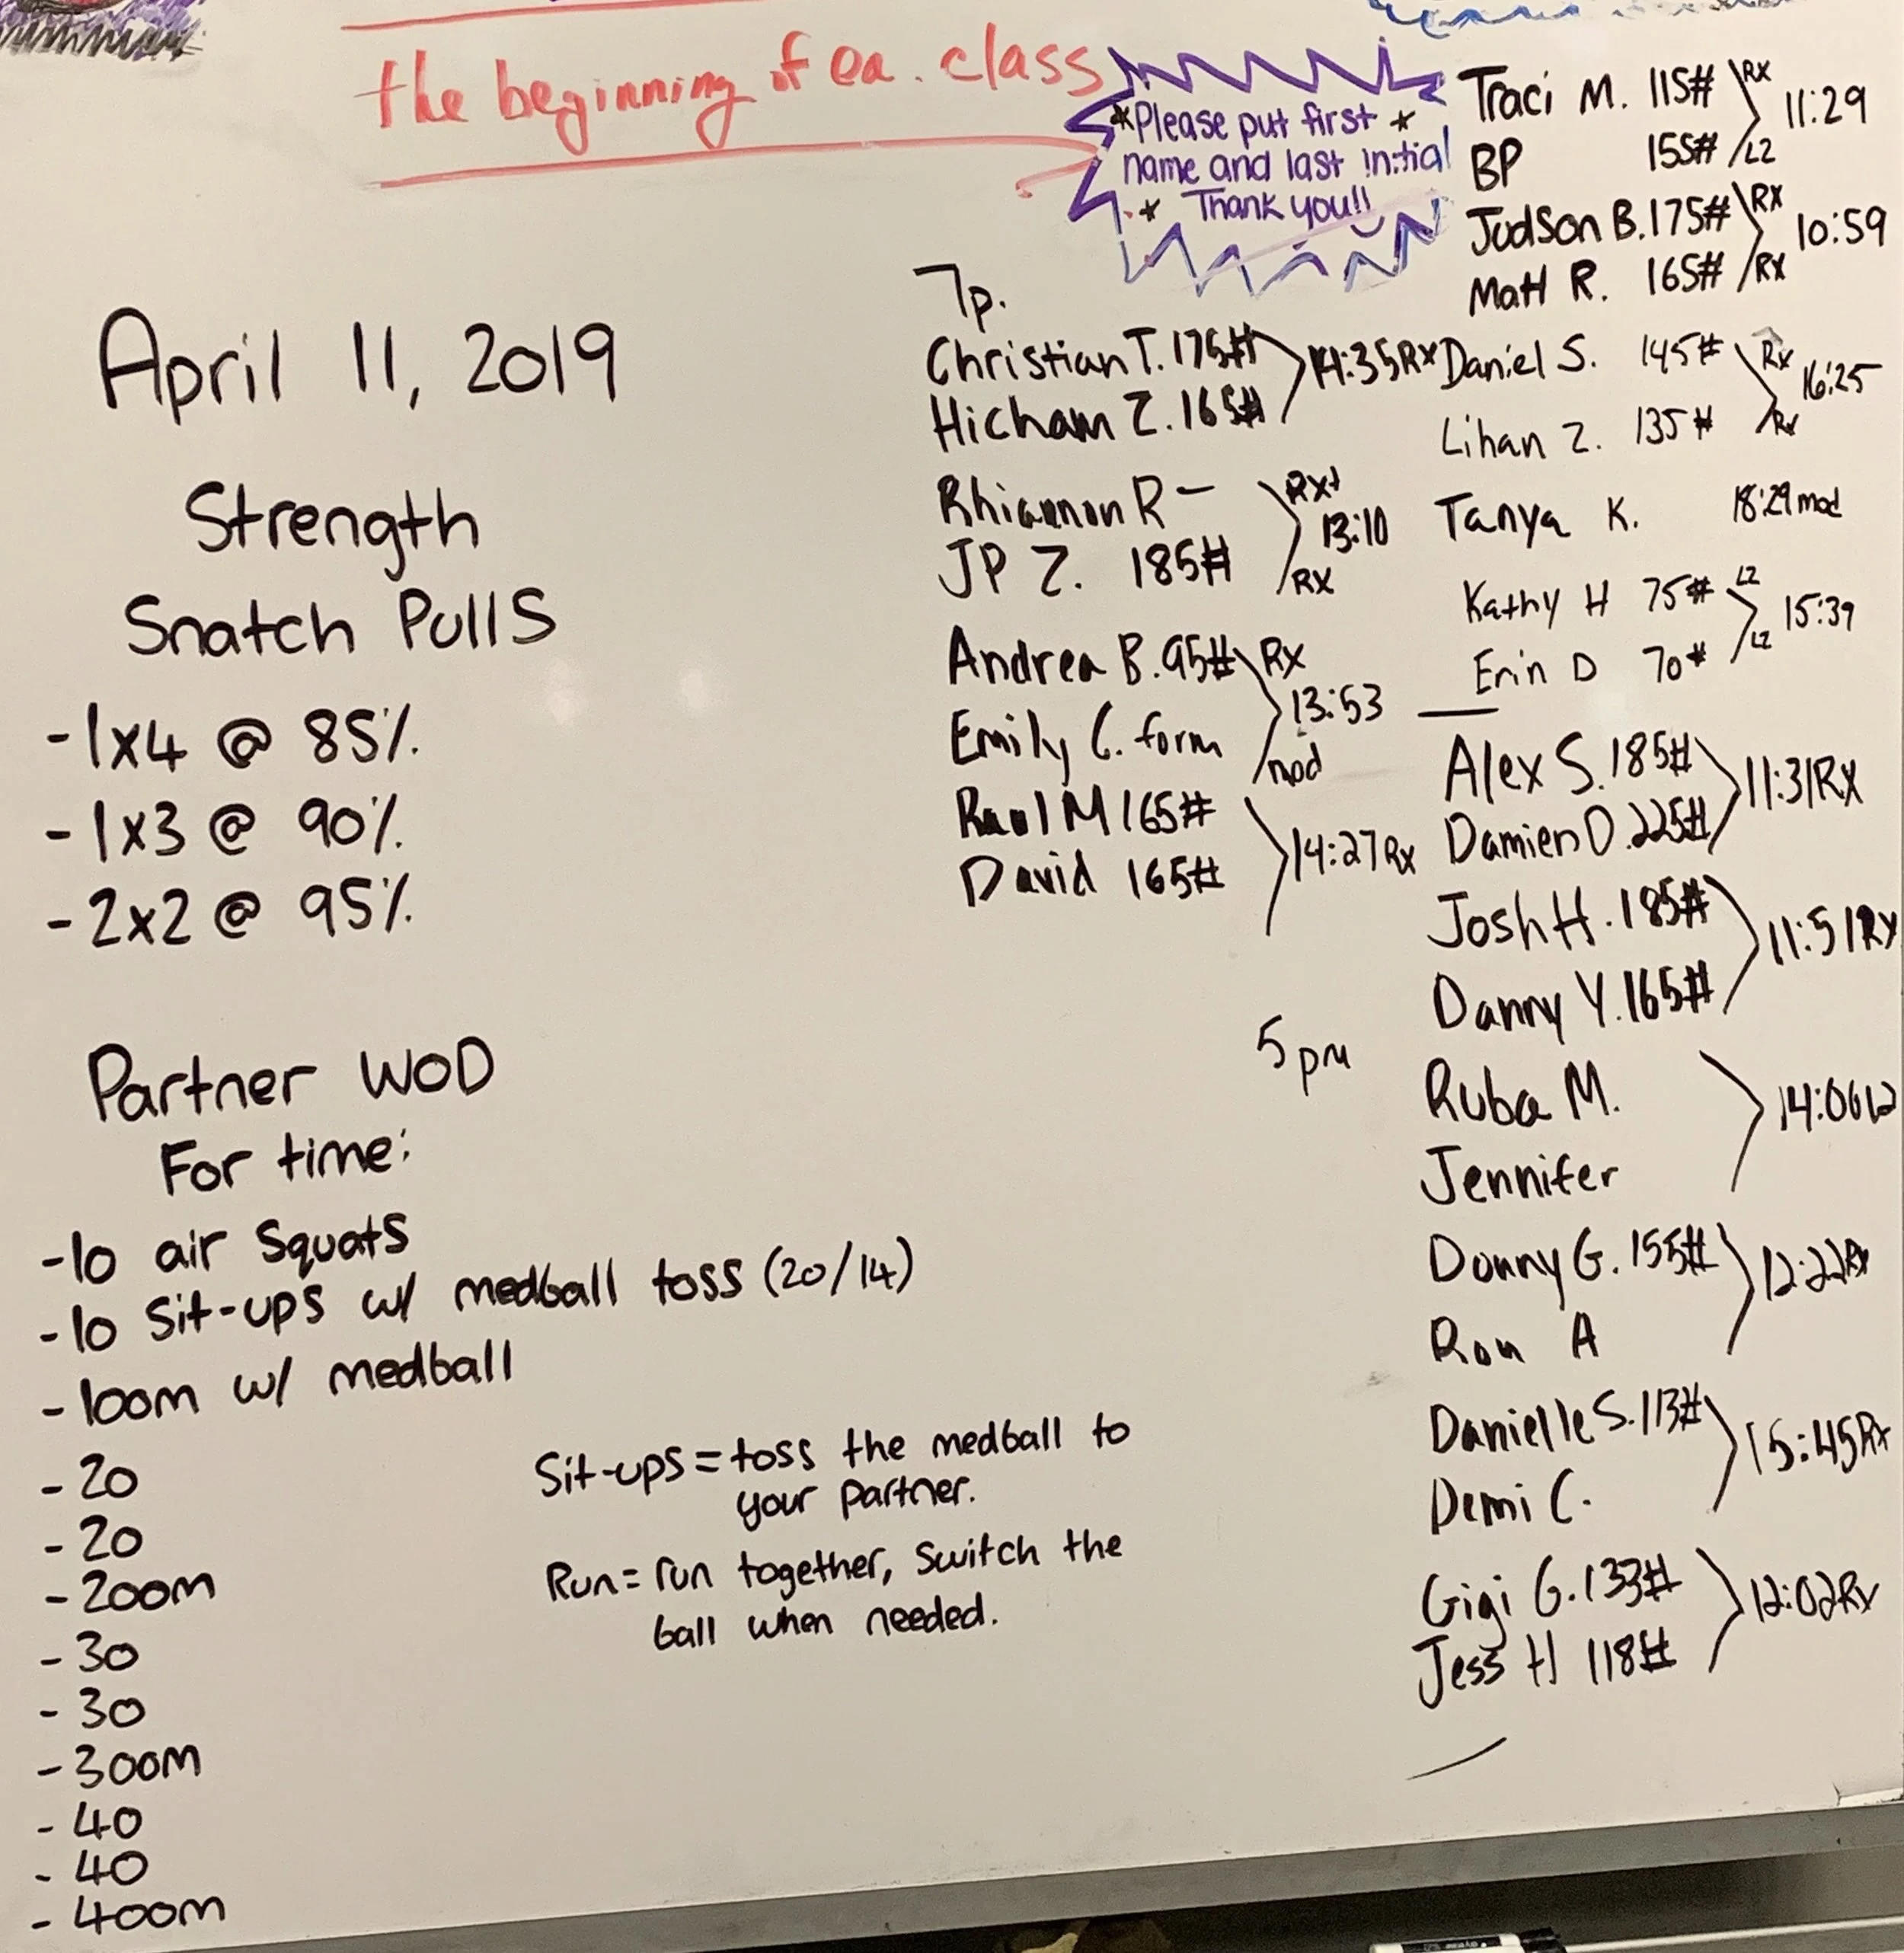 the beginning of ea. class
*Please put first *
name and last initial
* Thank you!!
April 11, 2019
Strength
Snatch Pulls
-1x4 @ 85%
-1x3 @ 90%
-2x2 @ 95%
Partner WOD
For time:
-10 air squats
-10 Sit-ups w/ medball toss (20/14)
-100m w/ medball
-20
-20
-200m
-30
-30
-300m
-40
-40
-400m
Sit-ups = toss the medball to
your partner.
Run = run together, switch the
ball when needed.
7p.
Christian T. 175#
14:35 RX
Hicham Z. 165#
Rhiannon R -
RX+
13:10
JP Z. 185#
RX
Andrea B. 95# RX
13:53
Emily C. form
mod
Raul M 165#
14:27 Rx
David 165#
Traci M. 115# RX
11:29
BP 155# L2
Judson B. 175# RX
10:59
Matt R. 165# RX
Daniel S. 145# Rx
16:25
Lihan Z. 135# Rx
Tanya K. 18:29 mod
Kathy H 75# L2
15:39
Erin D 70# L2
Alex S. 185#
11:31 RX
Damien D. 225#
Josh H. 185#
11:51 Rx
Danny Y. 165#
5pm
Ruba M.
14:06
Jennifer
Donny G. 155#
12:22 Rx
Ron A
Danielle S. 113#
15:45 Rx
Demi C.
Gigi G. 133#
12:02 Rx
Jess H 118#